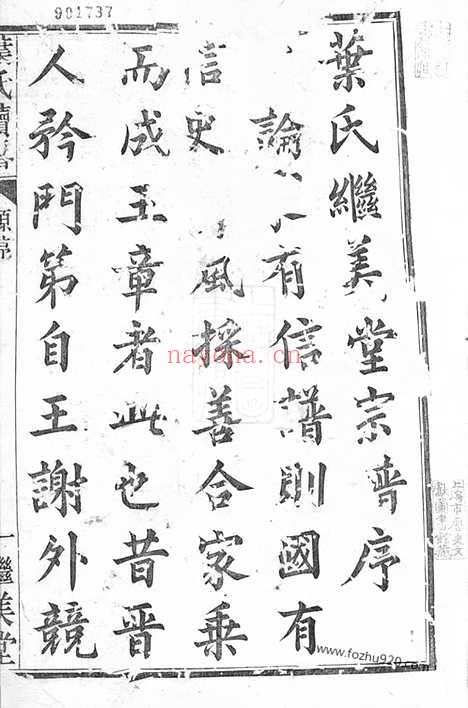 901737
葉氏繼美堂宗譜序
論 有信譜則國有
信史 風採善合家乘
而成玉章者此也昔晉
人矜門第自王謝外競
葉氏續譜
源序
一 繼美堂
上海市歷史文
獻圖書館藏
nayona.cn
www.fozhu920.com